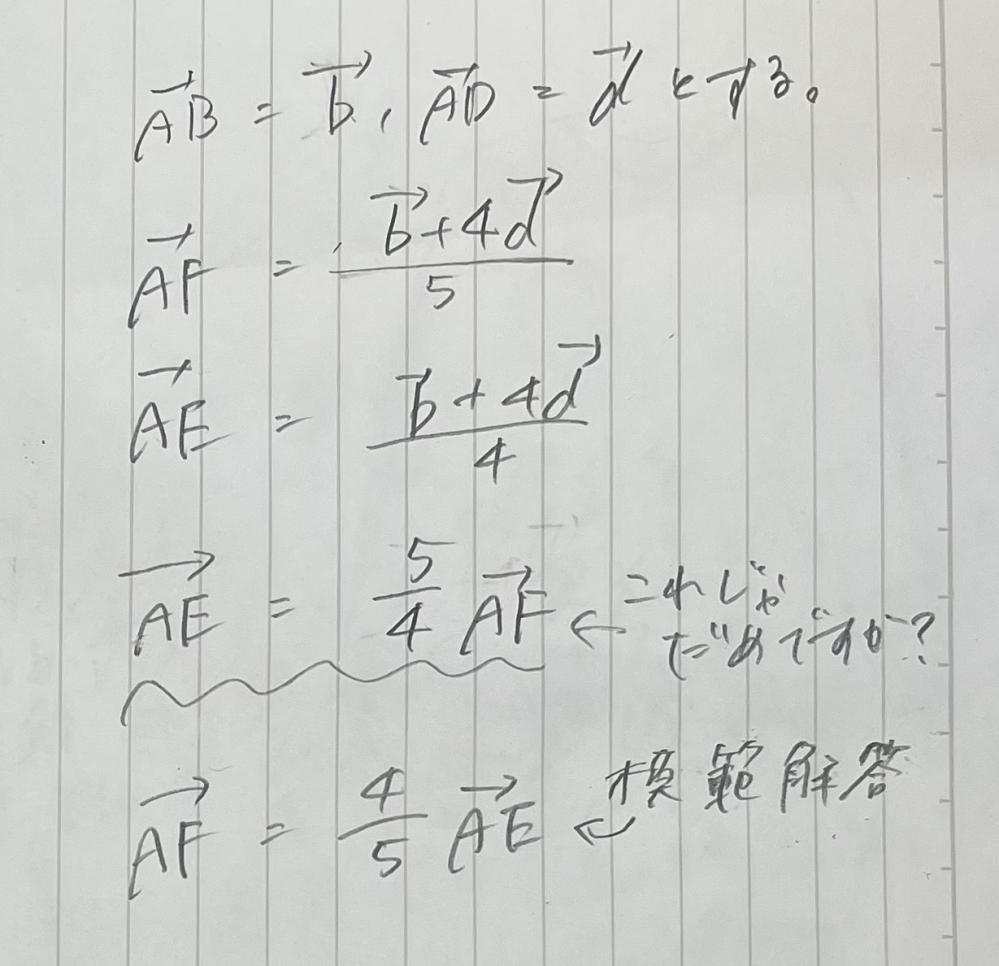 $\overrightarrow{AB} = \vec{b}, \overrightarrow{AD} = \vec{d}$ とする。
$\overrightarrow{AF} = \frac{\vec{b} + 4\vec{d}}{5}$
$\overrightarrow{AE} = \frac{\vec{b} + 4\vec{d}}{4}$
$\overrightarrow{AE} = \frac{5}{4} \overrightarrow{AF}$ ← これじゃ
だめですか?
$\overrightarrow{AF} = \frac{4}{5} \overrightarrow{AE}$ ← 模範解答